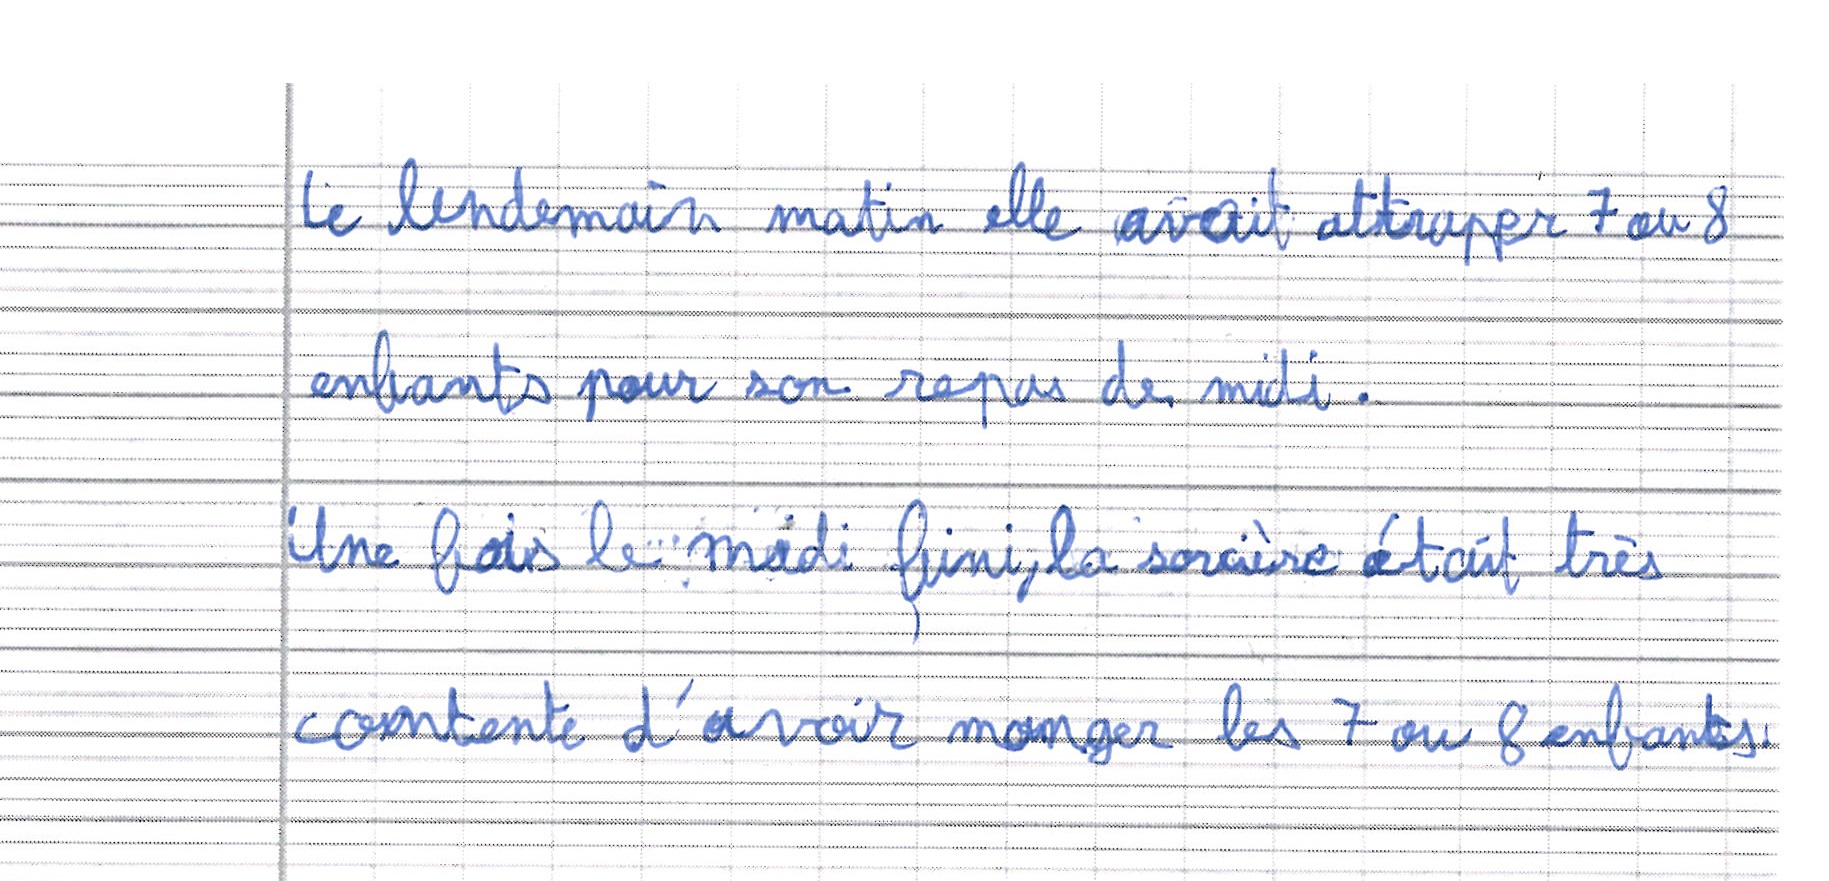 Le lendemain matin elle avait attrapper 7 ou 8
enfants pour son repas de midi.
Une fois le midi fini, la sorcière était très
contente d'avoir manger les 7 ou 8 enfants.